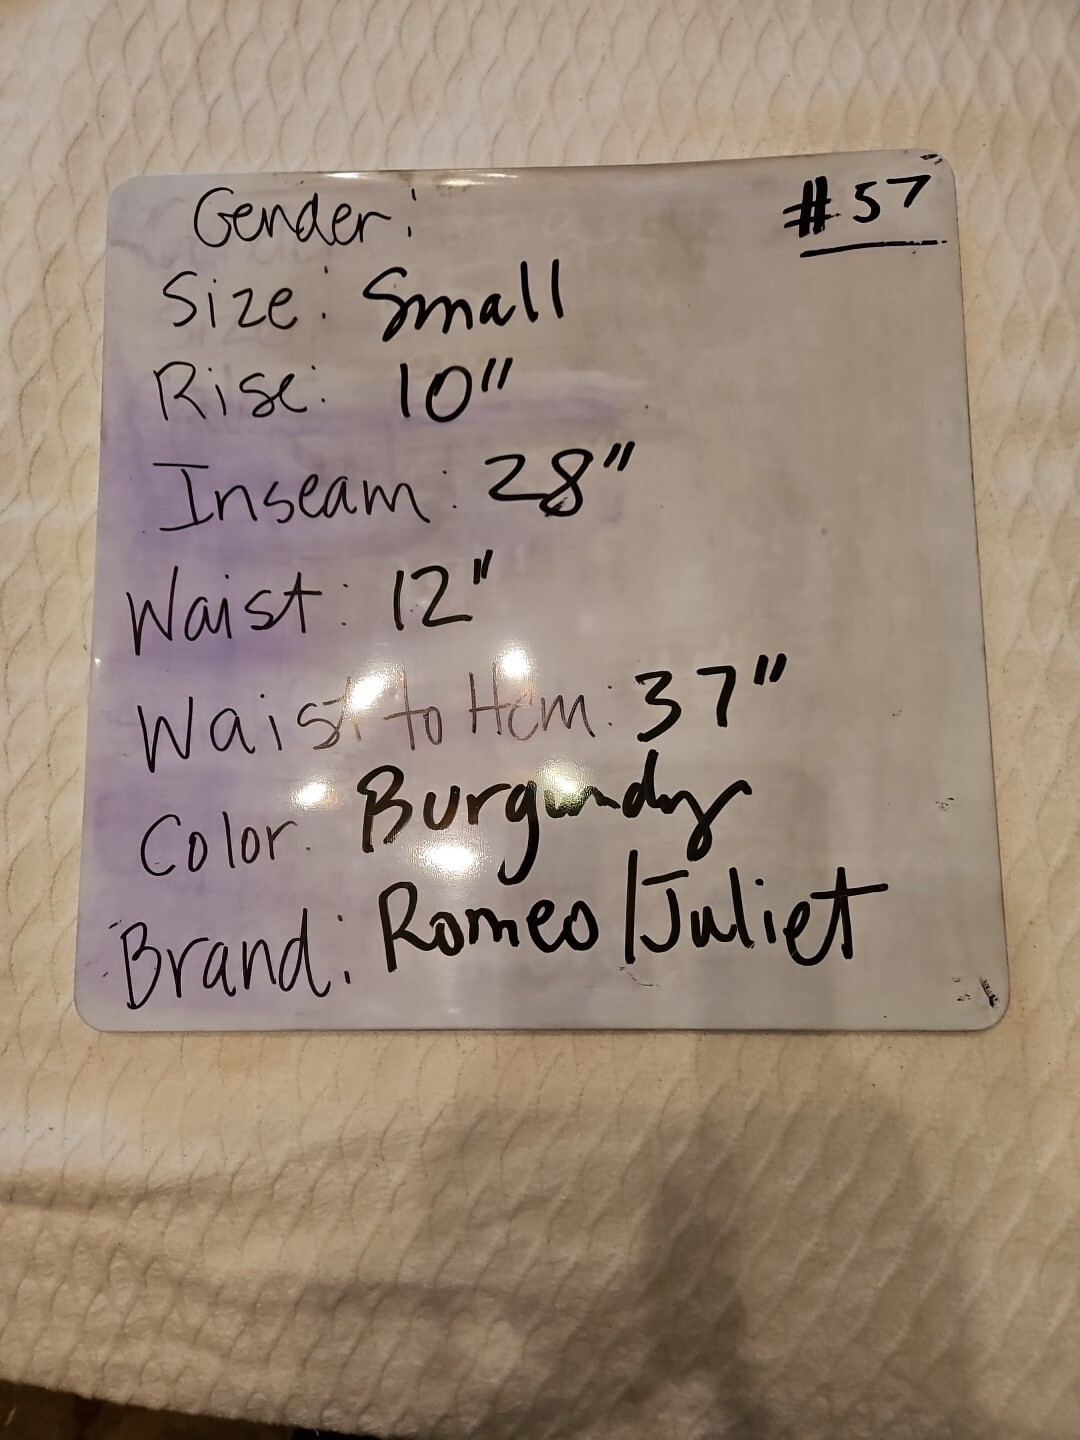 Gender:
#57
Size: Small
Rise: 10"
Inseam: 28"
Waist: 12"
Waist to Hem: 37"
Color: Burgundy
Brand: Romeo/Juliet